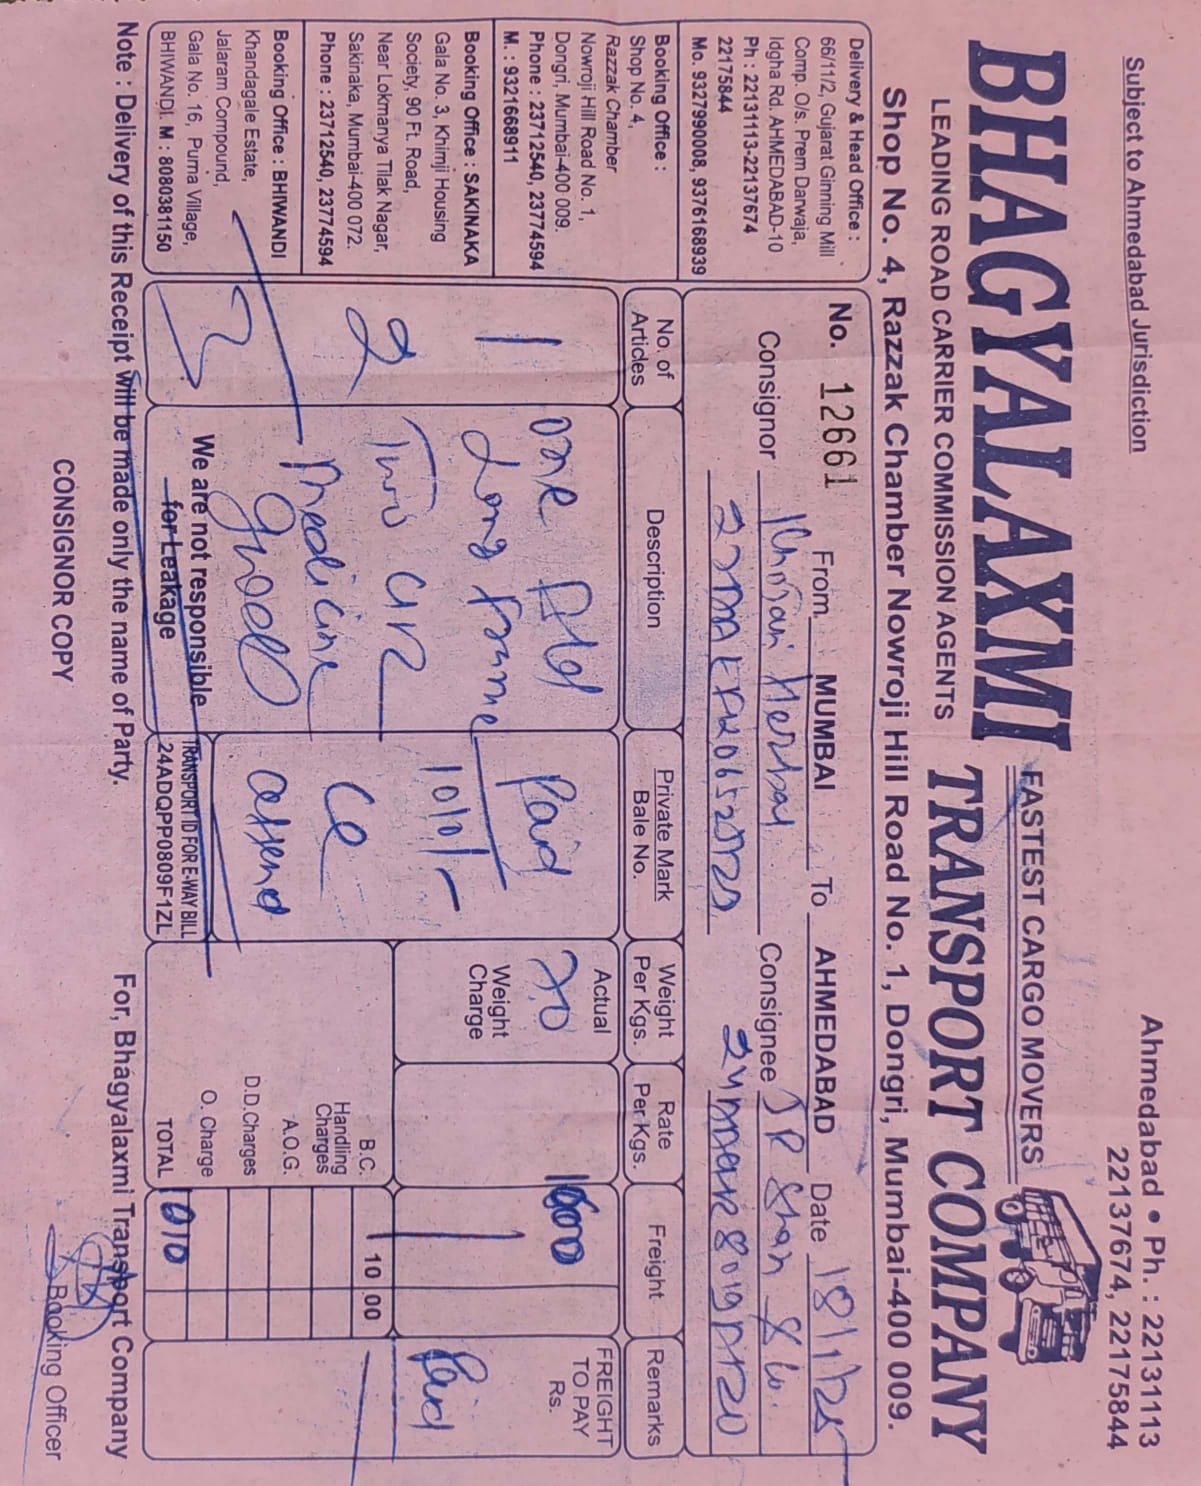 Subject to Ahmedabad Jurisdiction
Ahmedabad • Ph. : 22131113
22137674, 22175844
BHAGYALAXMI FASTEST CARGO MOVERS
LEADING ROAD CARRIER COMMISSION AGENTS
TRANSPORT COMPANY
Shop No. 4, Razzak Chamber Nowroji Hill Road No. 1, Dongri, Mumbai-400 009.
Delivery & Head Office :
66/11/2, Gujarat Ginning Mill
Comp. O/s. Prem Darwaja,
Idgha Rd. AHMEDABAD-10
Ph : 22131113-22137674
22175844
Mo. 9327990008, 9376168939
Booking Office :
Shop No. 4,
Razzak Chamber
Nowroji Hill Road No. 1,
Dongri, Mumbai-400 009.
Phone : 23712540, 23774594
M. : 9321668911
Booking Office : SAKINAKA
Gala No. 3, Khimji Housing
Society, 90 Ft. Road,
Near Lokmanya Tilak Nagar,
Sakinaka, Mumbai-400 072.
Phone : 23712540, 23774594
Booking Office : BHIWANDI
Khandagale Estate,
Jalaram Compound,
Gala No. 16, Purna Village,
BHIWANDI. M : 8080381150
No. 12661 From MUMBAI To AHMEDABAD Date 18/1/25
Consignor Herbal Consignee J R Shah & Co.
No. of Articles Description Private Mark Bale No. Weight Per Kgs. Rate Per Kgs. Freight Remarks
1 one Paid Actual 70 FREIGHT TO PAY Rs.
Long Frame 1010/- Weight Charge Paid
2 Two
B.C. 10 00
Medicine Handling Charges
A.O.G.
D.D.Charges
O. Charge
We are not responsible for Leakage
TRANSPORT ID FOR E-WAY BILL
24ADQPP0809F1ZL
TOTAL 1010
Note : Delivery of this Receipt will be made only the name of Party.
For, Bhagyalaxmi Transport Company
CONSIGNOR COPY
Booking Officer